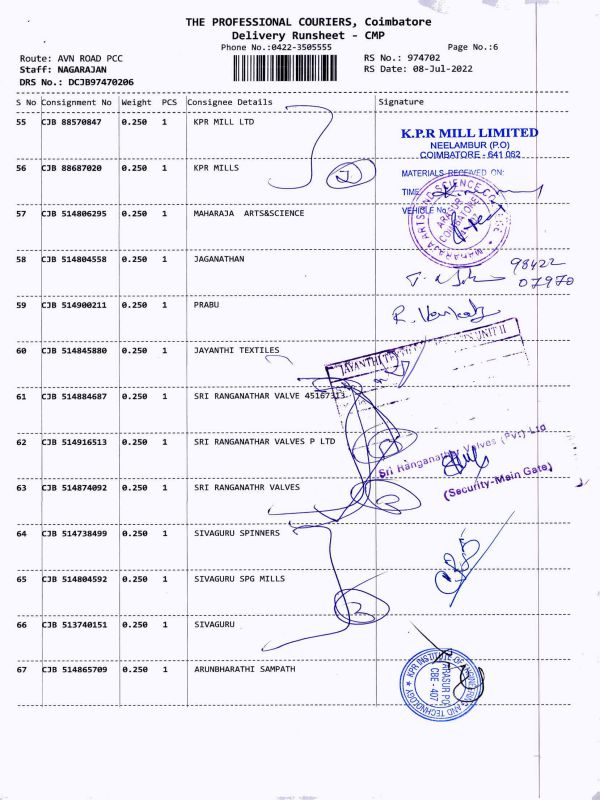 THE PROFESSIONAL COURIERS, Coimbatore
Delivery Runsheet - CMP
Phone No.:0422-3505555
Page No.:6
Route: AVN ROAD PCC
RS No.: 974702
Staff: NAGARAJAN
RS Date: 08-Jul-2022
DRS No.: DCJB97470206
S No Consignment No Weight PCS Consignee Details Signature
55 CJB 88570847 0.250 1 KPR MILL LTD
K.P.R MILL LIMITED
NEELAMBUR (P.O)
COIMBATORE - 641 062
56 CJB 88687020 0.250 1 KPR MILLS
MATERIALS RECEIVED ON:
TIME
VEHICLE No
57 CJB 514806295 0.250 1 MAHARAJA ARTS&SCIENCE
58 CJB 514804558 0.250 1 JAGANATHAN
98422
07970
59 CJB 514900211 0.250 1 PRABU
60 CJB 514845880 0.250 1 JAYANTHI TEXTILES
61 CJB 514884687 0.250 1 SRI RANGANATHAR VALVE 45167313
62 CJB 514916513 0.250 1 SRI RANGANATHAR VALVES P LTD
Sri Ranganathar Valves (Pvt) Ltd
(Security-Main Gate)
63 CJB 514874092 0.250 1 SRI RANGANATHR VALVES
64 CJB 514738499 0.250 1 SIVAGURU SPINNERS
65 CJB 514804592 0.250 1 SIVAGURU SPG MILLS
66 CJB 513740151 0.250 1 SIVAGURU
67 CJB 514865709 0.250 1 ARUNBHARATHI SAMPATH
KPR INSTITUTE OF ENGINEERING AND TECHNOLOGY
ARASUR PO
CBE - 407